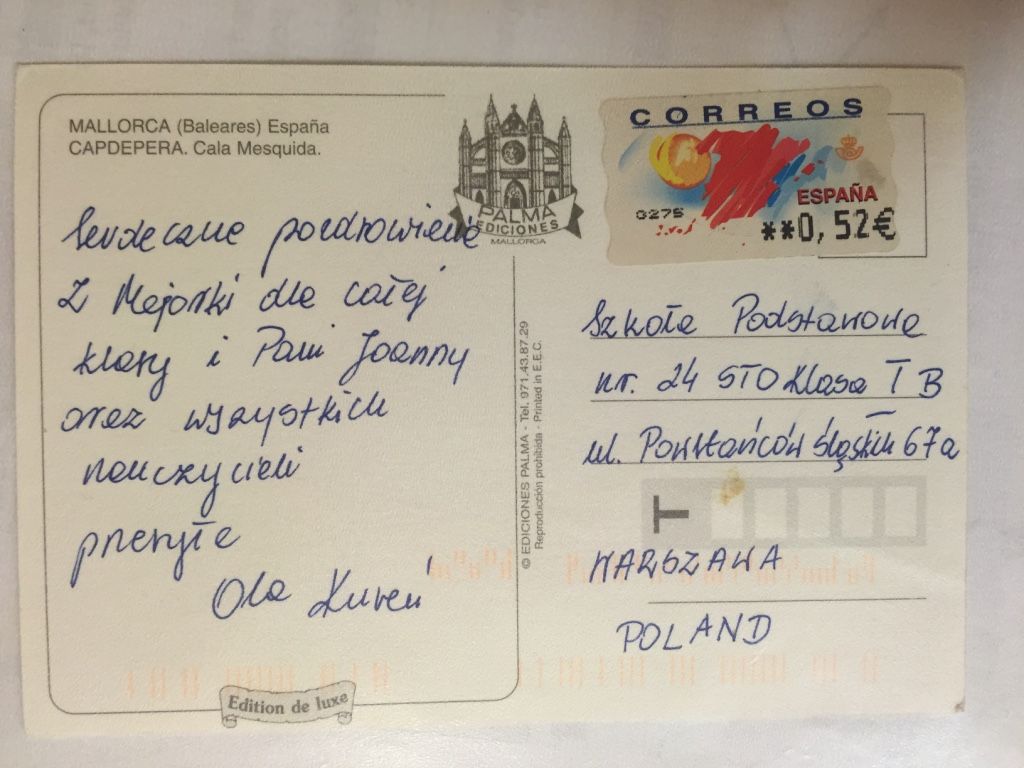 MALLORCA (Baleares) España
CAPDEPERA. Cala Mesquida.
Serdeczne pozdrowienie
Z Majorki dla całej
klasy i Pani Joanny
oraz wszystkich
nauczycieli
przesyła
Ola Kureń
Edition de luxe
PALMA
EDICIONES
MALLORCA
© EDICIONES PALMA - Tel. 971.43.87.29
Reproducción prohibida - Printed in E.E.C.
CORREOS
ESPAÑA
0275
**0,52€
Szkoła Podstawowa
nr. 24 STO Klasa I B
ul. Powstańców Śląskich 67a
T
WARSZAWA
POLAND